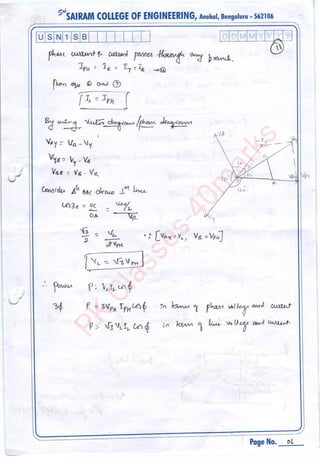 SAIRAM COLLEGE OF ENGINEERING, Anekal, Bengaluru - 562106
USN 1SB
DDMMYYYY
11
phase current & current passes through any branch.
I_PH = I_R = I_Y = I_B →⑥
from equ ⑥ and ③
I_L = I_PH
By using Vector diagram/phasor diagram
V_RY = V_R - V_Y
V_YB = V_Y - V_B
V_BR = V_B - V_R
Consider Δle OAC draw ⊥er line
Cos30 = OC/OA = (V_RY/2)/V_R
√3/2 = V_L/2V_PH ∵ [V_RY = V_L, V_R = V_PH]
V_L = √3 V_PH
∴ Power P = V_L I_L cosφ
3φ P = 3V_PH I_PH cosφ in terms of phase voltage and current
P = √3 V_L I_L cosφ in terms of line voltage and current.
RK Classes-40marks
Page No. 06